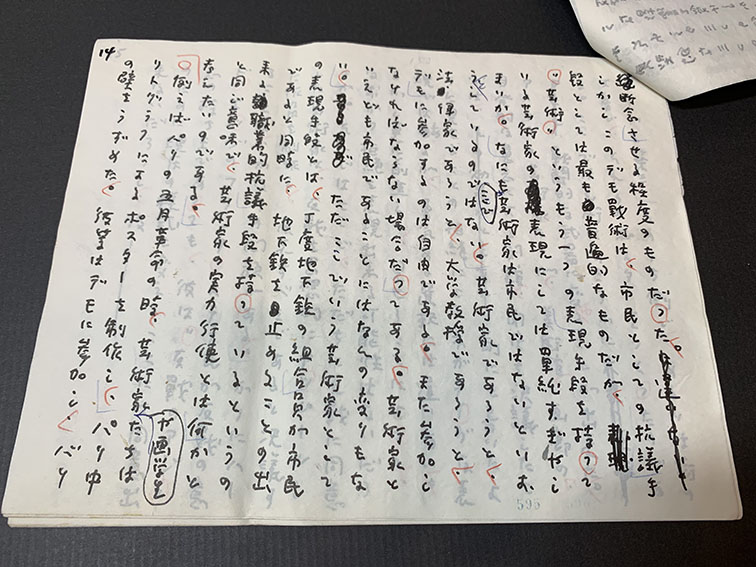 14
断念させる程度のものだった。
しかしこのデモ戦術は、市民としての抗議手
段としては最も普遍的なものだが、
"芸術"というもう一つの表現手段を持って
いる芸術家の表現にしては単純すぎやし
まいか。なにも芸術家は市民ではないといおう
としているのではない。芸術家であろうと、
法律家であろうと、大学教授であろうと、
デモに参加するのは自由である。また参加し
なければならない場合だってある。芸術家と
いえども市民であることにはなんの変りもな
い。ただここでいう芸術家として
の表現手段とは、丁度地下鉄の組合員が市民
であると同時に、地下鉄を止めることの出
来る職業的抗議手段を持っているというの
と同じ意味で、芸術家の実力行使とは何かと
考えたいのである。
例えばパリの五月革命の時、芸術家や画学生たちは
リトグラフによるポスターを制作し、パリ中
の壁をうずめた。彼等はデモに参加し、バリ
595